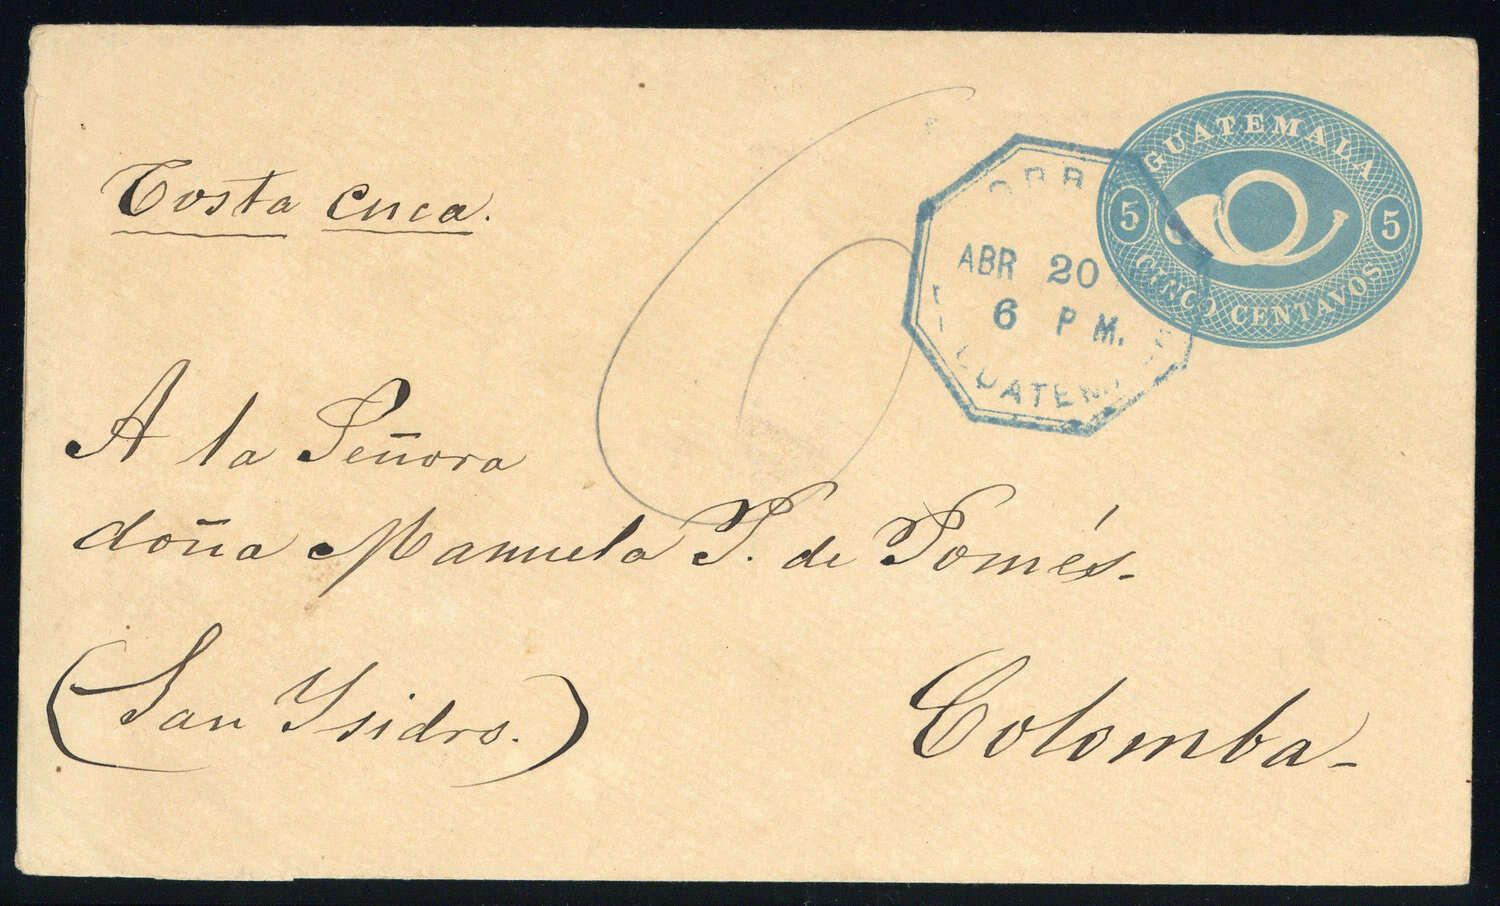 Costa Cuca.
GUATEMALA
5 5
CINCO CENTAVOS
ABR 20
6 P M.
A la Señora
doña Manuela P. de Pomés.
(San Ysidro.)
Colomba